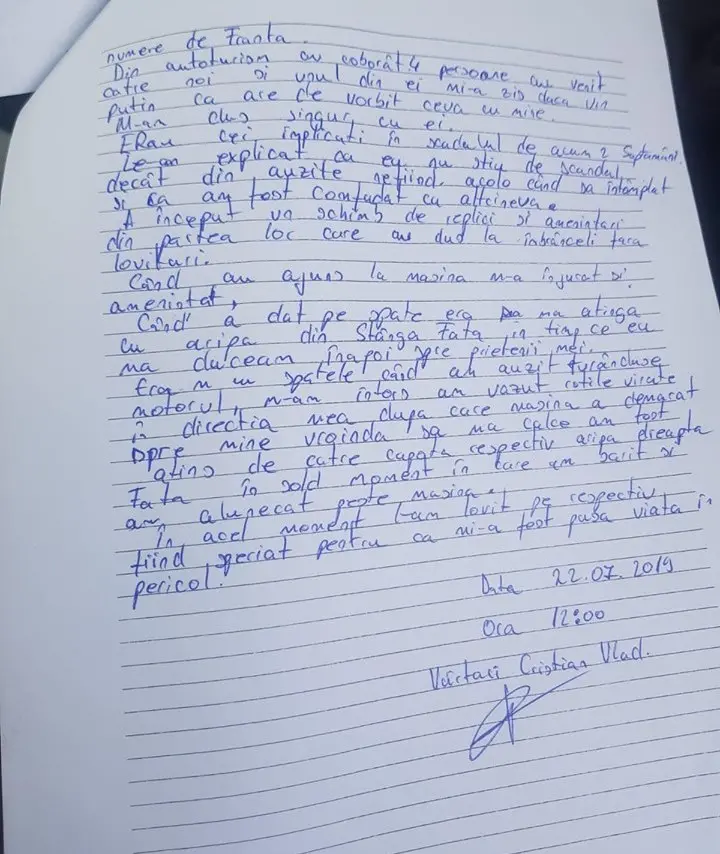 numere de Franta.
Din autoturism au coborât 4 persoane au venit
catre noi si unul din ei mi-a zis daca vin
putin ca are de vorbit ceva cu mine.
M-am dus singur cu ei.
ERau cei implicati în scadalul de acum 2 Saptamâni.
Le-am explicat ca eu nu stiu de scandal
decât din auzite nefiind acolo când sa întâmplat
si ca am fost comfudat cu altcineva.
A început un schimb de replici si amenintari
din partea lor care au dud la înbrânceli fara
lovituri.
Când au ajuns la masina m-a înjurat si
amenintat,
Când a dat pe spate era sa ma atinga
cu aripa din Stânga Fata în timp ce eu
ma duceam înapoi spre prietenii mei.
Eram cu spatele când am auzit turânduse
motorul, m-am întors am vazut rotile virate
în directia mea dupa care masina a demarat
spre mine vrainda sa ma calce am fost
atins de catre capota respectiv aripa dreapta
Fata în sold moment în care am sarit si
am alunecat peste masina.
În acel moment l-am lovit pe respectiv
fiind speriat pentru ca mi-a fost pusa viata în
pericol.
Data 22.07.2019
Ora 12:00
Cristian Vlad.